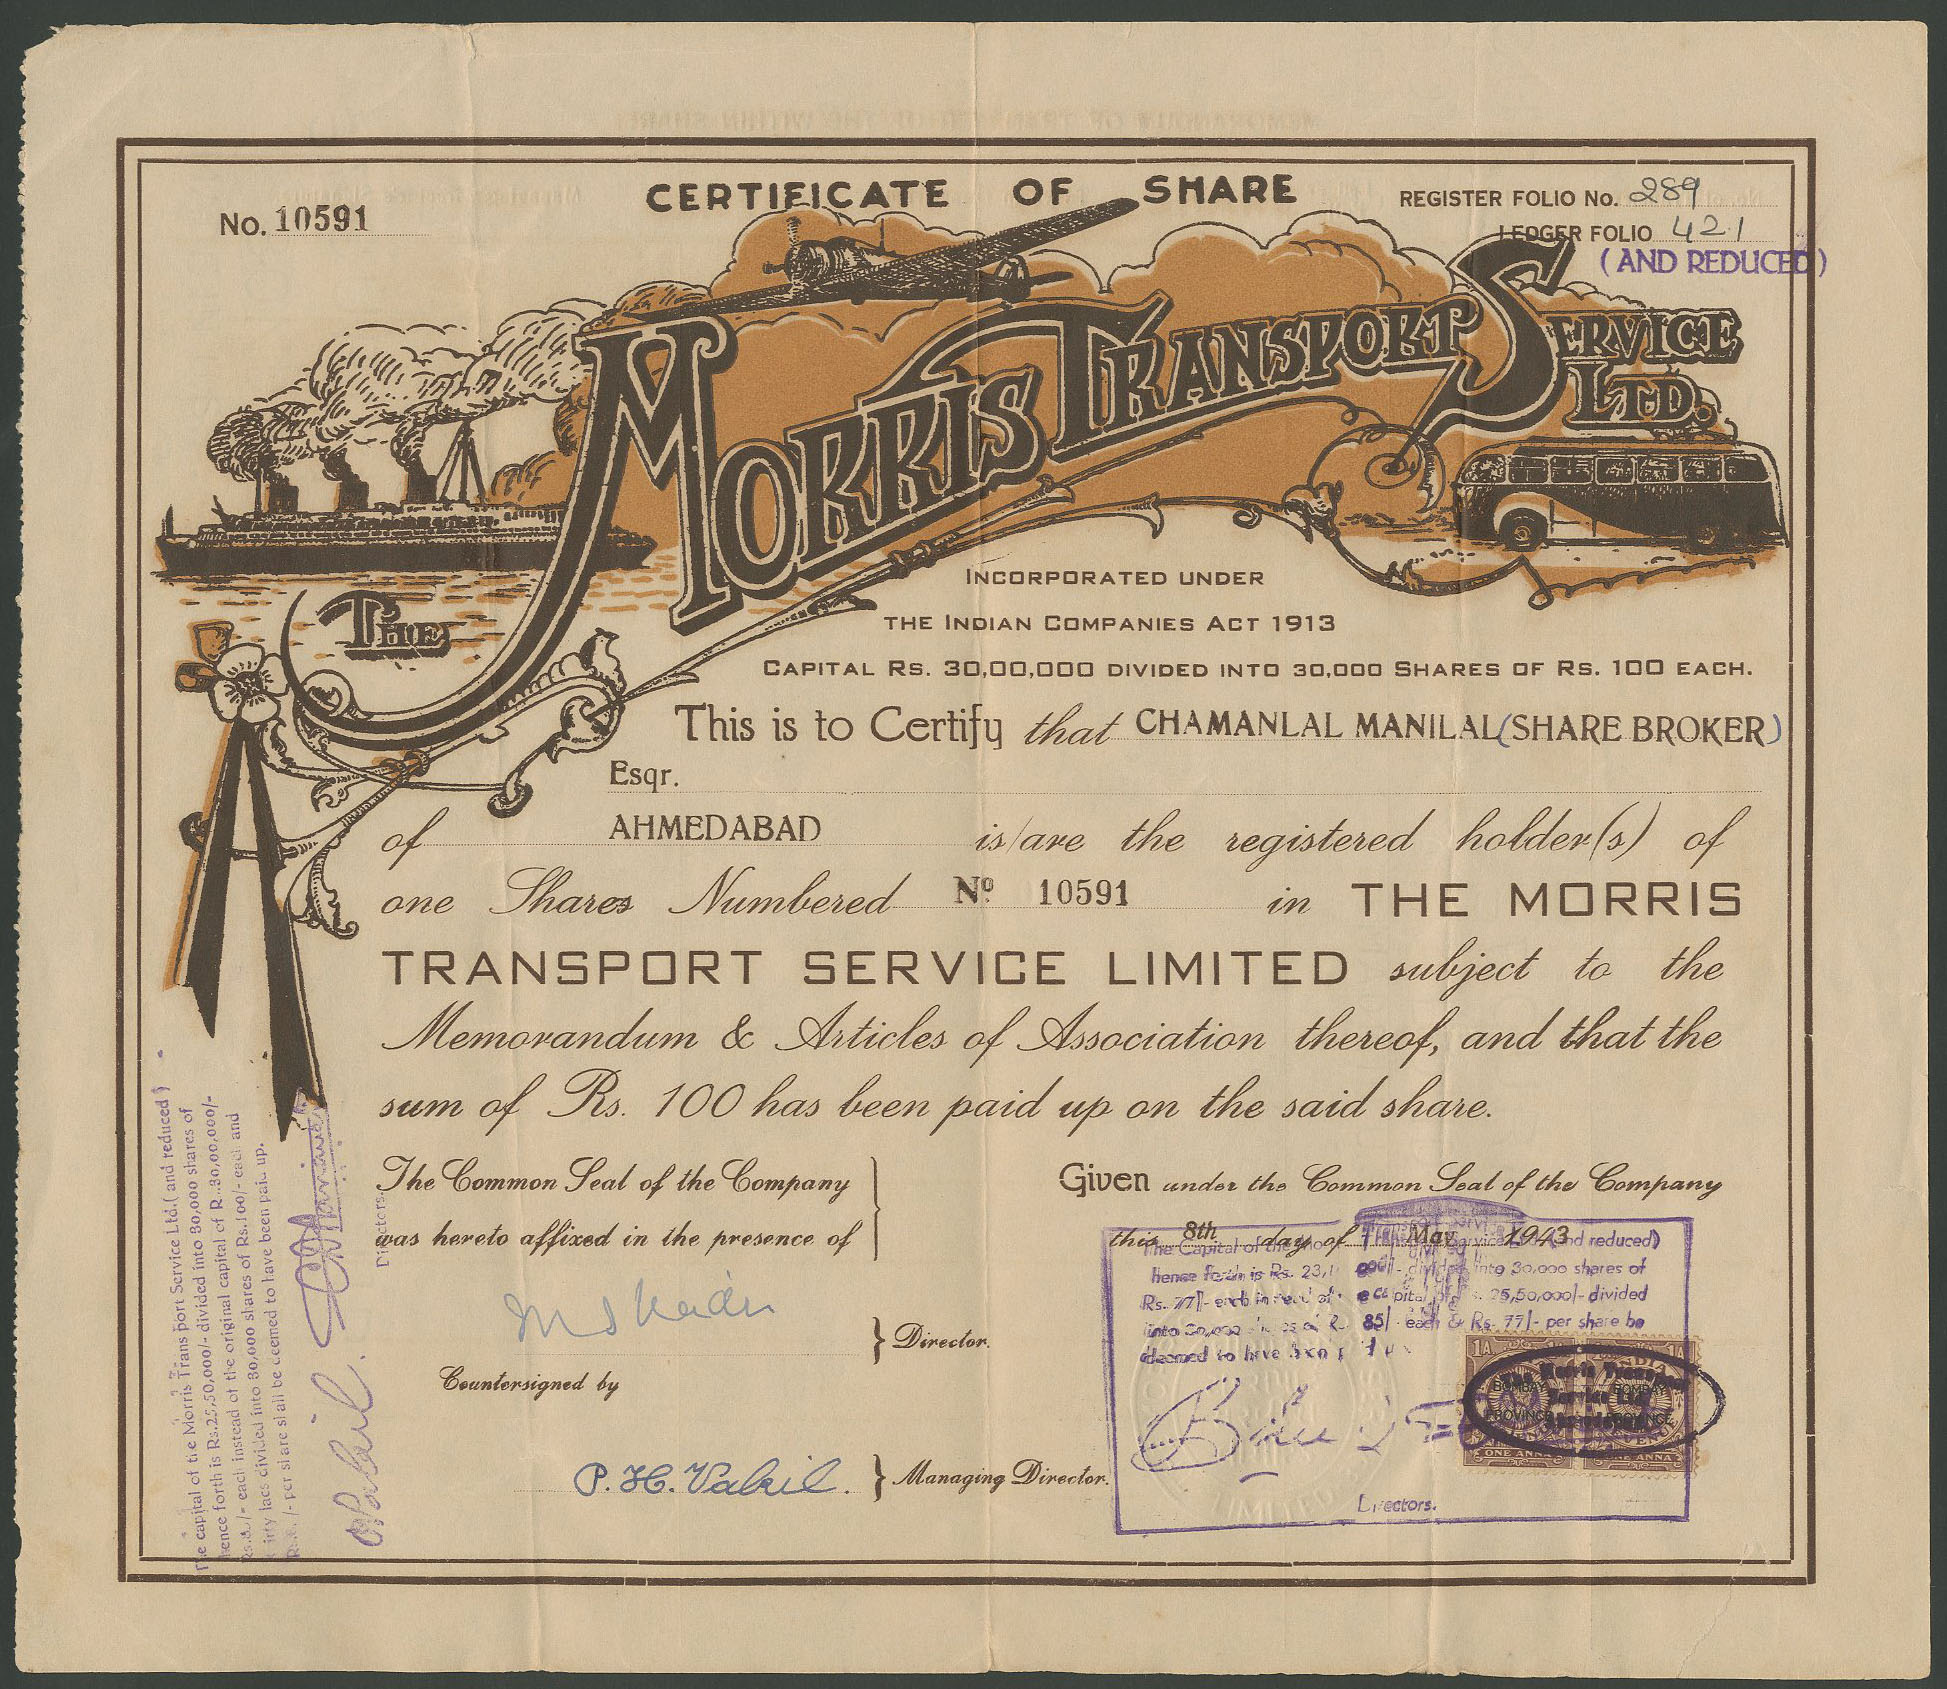 CERTIFICATE OF SHARE
No. 10591
REGISTER FOLIO No. 289
LEDGER FOLIO 421
(AND REDUCED)
THE MORRIS TRANSPORT SERVICE LTD.
INCORPORATED UNDER
THE INDIAN COMPANIES ACT 1913
CAPITAL RS. 30,00,000 DIVIDED INTO 30,000 SHARES OF RS. 100 EACH.
This is to Certify that CHAMANLAL MANILAL (SHARE BROKER)
Esqr.
of AHMEDABAD is/are the registered holder(s) of
one Shares Numbered No 10591 in THE MORRIS
TRANSPORT SERVICE LIMITED subject to the
Memorandum & Articles of Association thereof, and that the
sum of Rs. 100 has been paid up on the said share.
The Common Seal of the Company
was hereto affixed in the presence of
Director.
Countersigned by
P. H. Vakil. Managing Director.
Given under the Common Seal of the Company
this 8th day of May 1943
The Capital of the Service (and reduced)
hence forth is Rs. 23,1 000/- divided into 30,000 shares of
Rs. 77/- each instead of capital of Rs. 25,50,000/- divided
into 30,000 shares of Rs. 85/- each & Rs. 77/- per share be
deemed to have been
Directors.
1A INDIA 1A
BOMBAY BOMBAY
PROVINCE PROVINCE
ONE ANNA ONE ANNA
The Morris Transport
Service Ltd
The capital of the Morris Transport Service Ltd. (and reduced)
hence forth is Rs.25,50,000/- divided into 30,000 shares of
Rs. /- each instead of the original capital of Rs.30,00,000/-
thirty lacs divided into 30,000 shares of Rs.100/- each and
Rs. /- per share shall be deemed to have been paid up.
Directors.